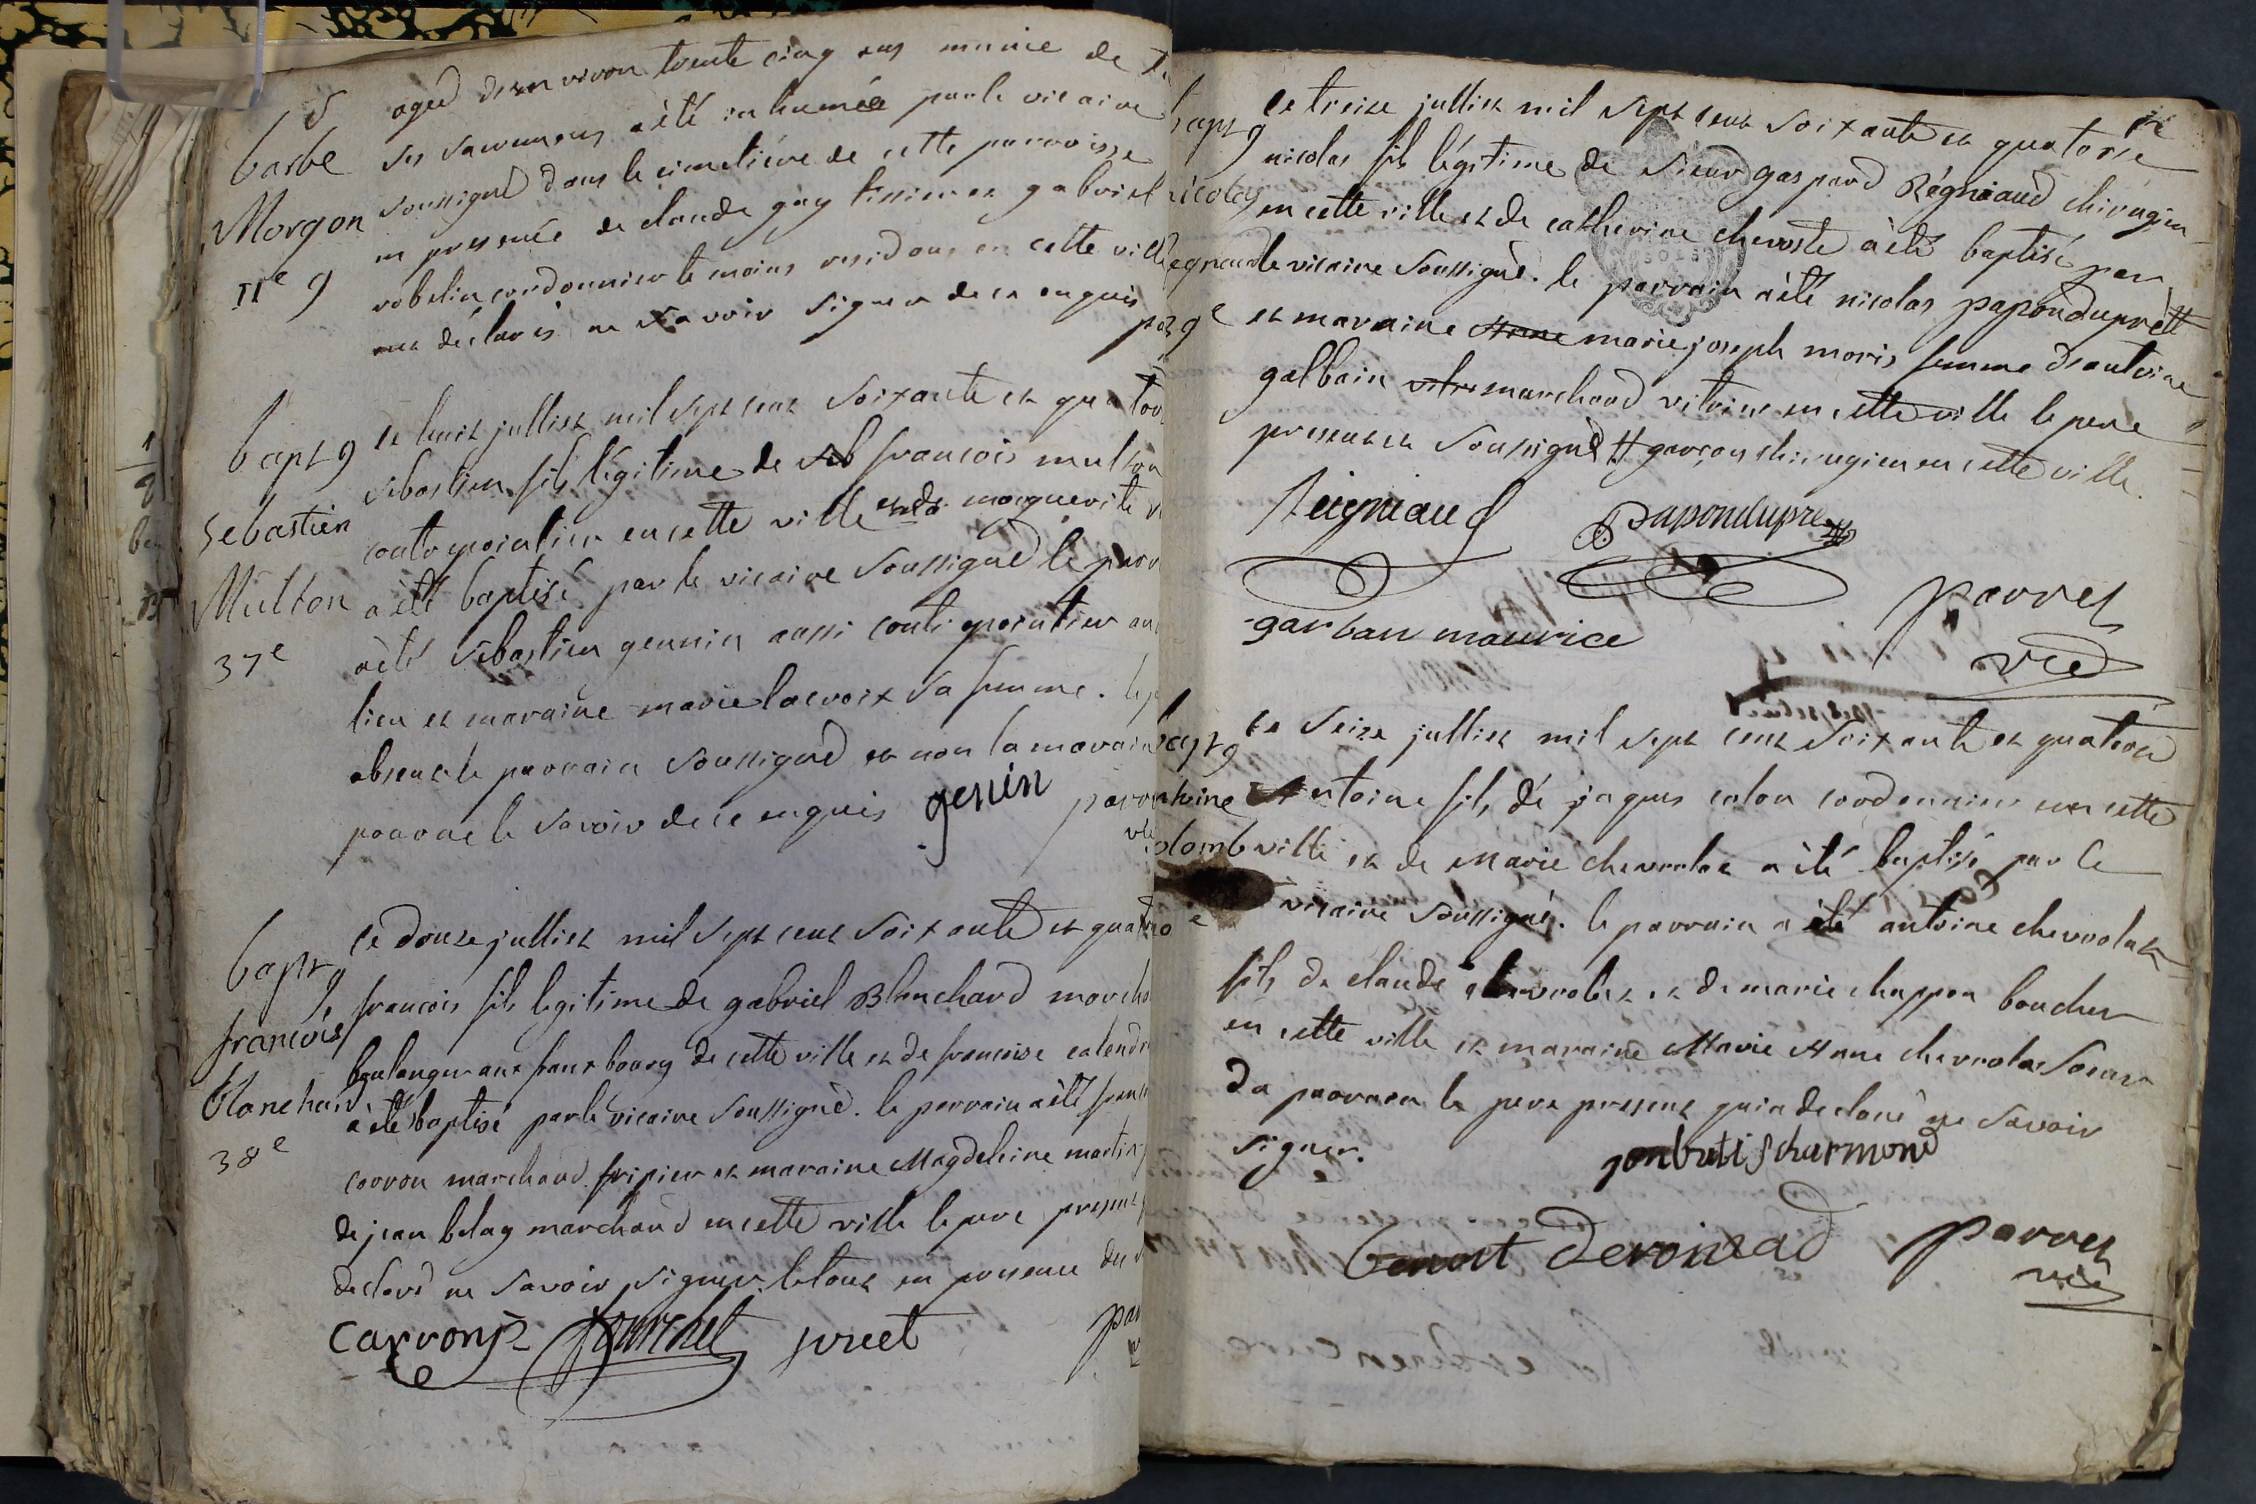 S
barbe
Morgon
IIe
aged denviron trente cinq ans munie de
ses sacremens a été inhumée par le vicaire
soussigné dans le cimetiére de cette parroisse
en presence de claude guy tissier et gabriel
robelin cordonnier temoins residans en cette ville
ont déclarés ne savoir signer de ce enquis
bapt
Sebastien
Multon
37e
le huit julliet mil sept cent soixante et quator
sebastien fils légitime de francois multon
coutepointier en cette ville et de marguerite
a été baptisé par le vicaire soussigné le parr
a été sebastien gennin aussi coutepointier au
lieu et maraine marie lacroix sa femme. le p
absent le parrain soussigné et non la maraine
pour ne le savoir de ce enquis genin
bapt
francois
blanchard
38e
le douze julliet mil sept cent soixante et quato
francois fils legitime de gabriel Blanchard march
boulanger aux fauxbourg de cette ville et de francoise calendr
a été baptisé par le vicaire soussigné. le parrain a été
corron marchand fripier et maraine Magdeleine martin
de jean belay marchand en cette ville le pere present
declaré ne savoir signer. le tout en presence du
carron
juet
bapt
nicolas
regniaud
le treize julliet mil sept cent soixante et quatorze
nicolas fils légitime de sieur gaspard Régniaud chirugien
en cette ville et de catherine chevoste a été baptisé par
le vicaire soussigné. le parrain a été nicolas papondupré #
et maraine marie joseph moris femme d'antoine
galbain marchand vitrier en cette ville le pere
present et soussigné # garçon chirugien en cette ville.
Reigniaud Papondupré
garban maurice
parret
vic
bapt
antoine
colomb
le seize julliet mil sept cent soixante et quatorze
Antoine fils de jaques colon cordonnier en cette
ville et de Marie chevrolat a été baptisé par le
vicaire soussigné. le parrain a été antoine chevrolat
fils de claude chevrolat et de marie chappon boucher
en cette ville et maraine Marie Anne chevrolat soeur
du parrain le pere present qui a declaré ne savoir
signer.
jenbatis charmond
benoit
parret
vic